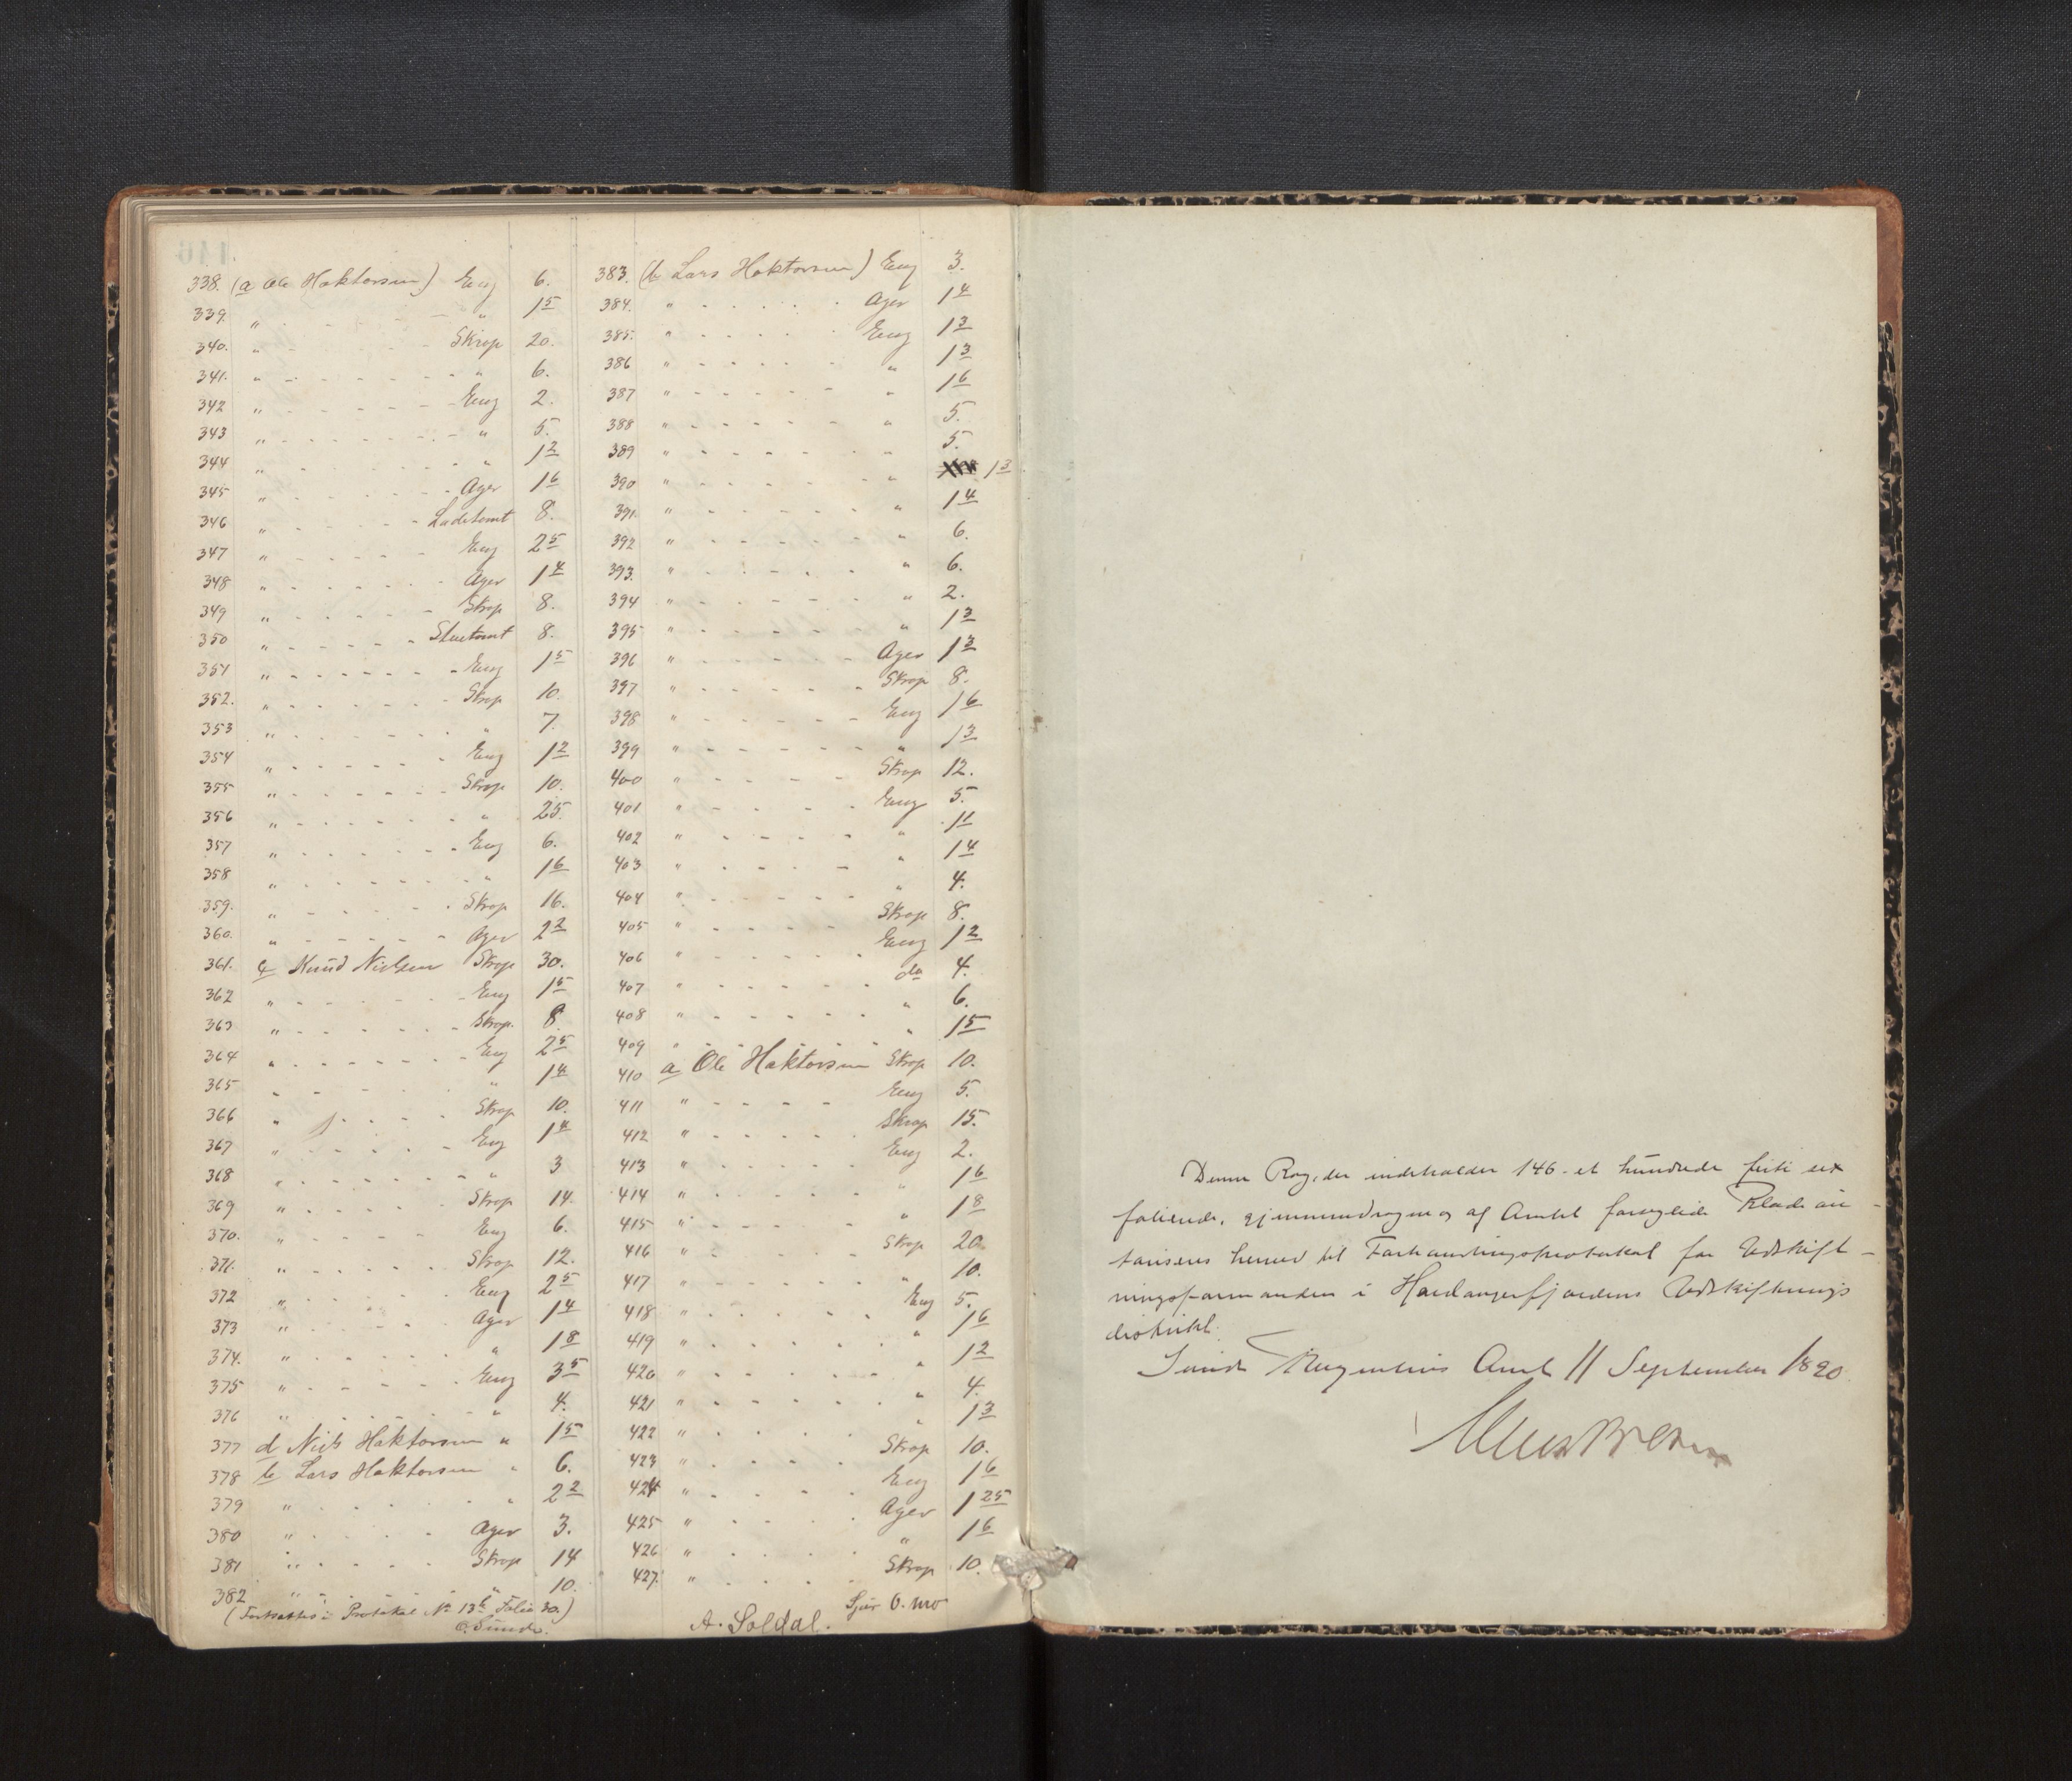 338. (a Ole Haktorsen) Eng 6.
339. " - - - " 15
340. " - - - Skrap 20.
341. " - - - " 6.
342 " - - - Eng 2.
343 " - - - " 5.
344 " - - - " 12
345 " - - - Ager 16
346 " - - - Ladetomt 8.
347 " - - - Eng 25
348 " - - - Ager 14
349 " - - - Skrap 8.
350 " - - - Stuetomt 8.
351 " - - - Eng 15
352. " - - - Skrap 10.
353 " - - - " 7.
354 " - - - Eng 12
355 " - - - Skrap 10.
356 " - - - " 25.
357 " - - - Eng 6.
358 " - - - " 16
359. " - - - Skrap 16.
360. " - - - Ager 22
361. c Knud Nielsen Skrap 30.
362 " - - - Eng 15
363 " - - - Skrap. 8.
364 " - - - Eng 25
365 " - - - " 14
366 " - - - Skrap 10.
367 " - - - Eng 14
368 " - - - " 3
369 " - - - Skrap 14.
370. " - - - Eng 6.
371. " - - - Skrap 12.
372 " - - - Eng 25
373 " - - - Ager 14
374. " - - - " 18
375 " - - - Eng 35
376 " - - - " 4.
377 d Niels Haktorsen " 15
378 b Lars Haktorsen " 6.
379 " - - - " 22
380 " - - - Ager 3.
381 " - - - Skrap 14
382 " - - - " 10.
(Fortsættes i Protokol No 13b Folio 30.)
O. Sunde.
383. (b Lars Haktorsen) Eng 3.
384. " - - - Ager 14
385. " - - - Eng 13
386 " - - - " 13
387 " - - - " 16
388 " - - - " 5.
389 " - - - " 5.
390 " - - - " 13
391. " - - - " 14
392 " - - - " 6.
393. " - - - " 6.
394 " - - - " 2.
395 " - - - " 13
396 " - - - Ager 13
397 " - - - Skrap 8.
398 " - - - Eng 16
399 " - - - " 13
400 " - - - Skrap 12.
401 " - - - Eng 5.
402 " - - - " 11
403 " - - - " 14
404 " - - - " 4.
405 " - - - Skrap 8.
406 " - - - Eng 12
407 " - - - do 4.
408 " - - - " 6.
409 " - - - " 15
410 a Ole Haktorsen Skrap 10.
411 " - - - Eng 5.
412 " - - - Skrap 15.
413 " - - - Eng 2.
414 " - - - " 16
415 " - - - " 18
416 " - - - Skrap 20.
417 " - - - " 10.
418 " - - - Eng 5.
419 " - - - " 16
420 " - - - " 12
421 " - - - " 4.
422 " - - - " 13
423 " - - - Skrap 10.
424 " - - - Eng 16
425 " - - - Ager 125
426 " - - - " 16
427. " - - - Skrap 10.
Sjur O. Mo
A. Soldal.
Denne Bog, der indeholder 146 - et hundrede firti sex
folierede, gjennemdragne og af Amtet forseglede Blade au-
toriseres herved til Forhandlingsprotokol for Udskift-
ningsformanden i Hardangerfjordens Udskiftnings
distrikt.
Søndre Bergenhus Amt 11 September 1890.